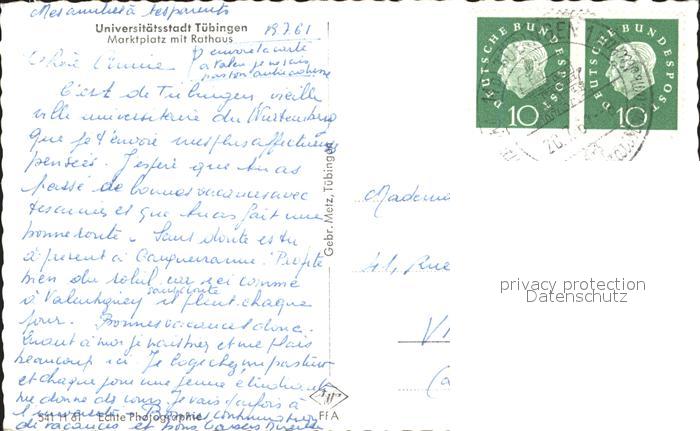 Mes amitiés à tes parents
Universitätsstadt Tübingen
Marktplatz mit Rathaus
19.7.61
J'envoie la carte
à Valen je ne sais
pas ton autre adresse
Chère
C'est de Tübingen vieille
ville universitaire du Wurtemberg
que je t'envoie mes plus affectueuses
pensées. J'espère que tu as
passé de bonnes vacances avec
tes amies et que tu as fait une
bonne route. Sans doute es tu
à présent à Carqueiranne. Profite
bien du soleil car ici comme
à Valentigney sans doute il pleut chaque
jour. Bonnes vacances donc.
Quant à moi je vais bien et me plais
beaucoup ici. Je loge chez un pasteur
et chaque jour une jeune étudiante
me donne des cours. Je vais parfois à
l'université. Bonne continuation
de vacances et bons baisers
541 11 61 Echte Photographie
Gebr. Metz, Tübingen
FfA
DEUTSCHE BUNDESPOST
10
DEUTSCHE BUNDESPOST
10
Madame
Rue
privacy protection
Datenschutz